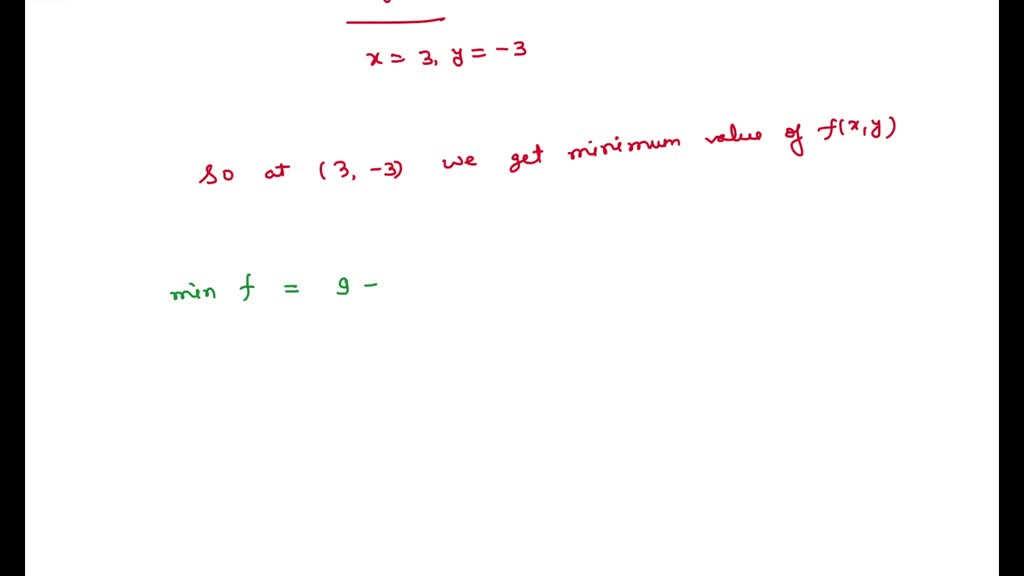 x = 3, y = -3
So at (3, -3) we get minimum value of f(x,y)
min f = 9 -